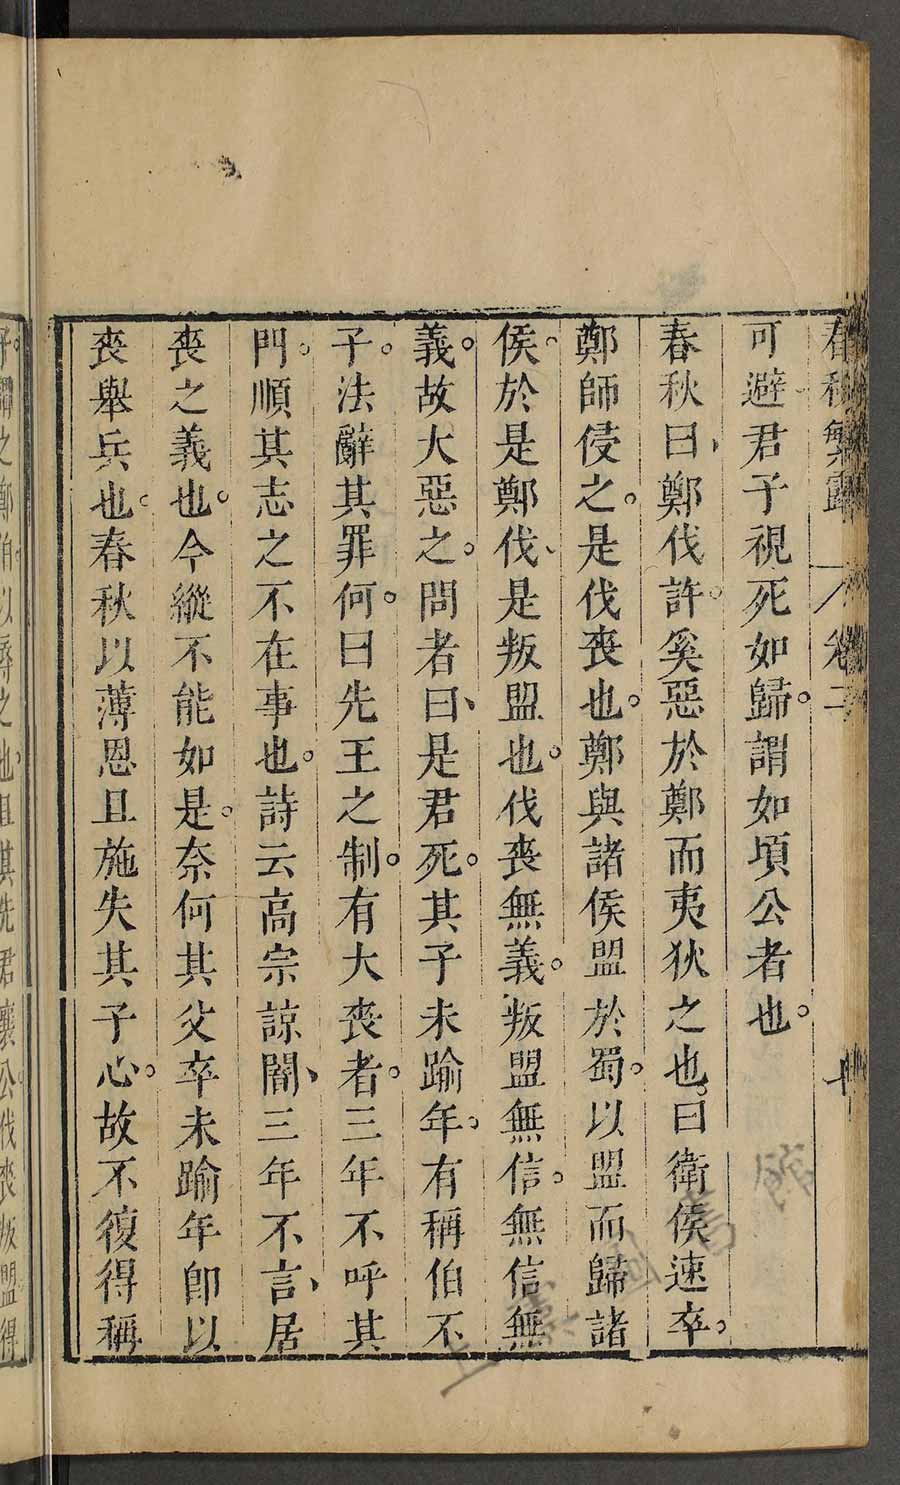 春秋繁露 卷二 十
可避君子視死如歸。謂如頃公者也。
春秋曰、鄭伐許。奚惡於鄭而夷狄之也。曰衛侯速卒。
鄭師侵之。是伐喪也。鄭與諸侯盟於蜀。以盟而歸諸
侯。於是鄭伐、是叛盟也。伐喪無義。叛盟無信。無信無
義。故大惡之。問者曰、是君死。其子未踰年。有稱伯不
子。法辭其罪何。曰先王之制。有大喪者。三年不呼其
門。順其志之不在事也。詩云高宗諒闇、三年不言、居
喪之義也。今縱不能如是。奈何其父卒未踰年卽以
喪舉兵也。春秋以薄恩且施失其子心。故不復得稱
子謂之鄭伯以辱之也。且其先君襄公伐喪叛盟得